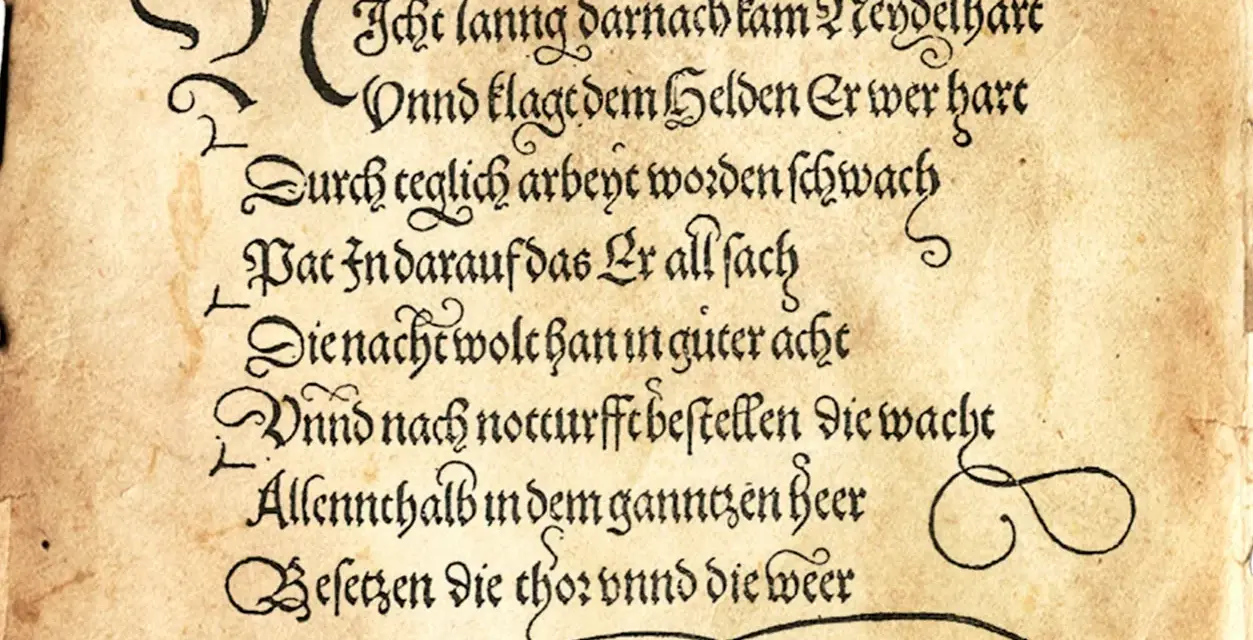 NIcht lanng darnach kam Neydelhart
Vnnd klagt dem Helden Er wer hart
Durch teglich arbeyt worden schwach
Pat In darauf das Er all sach
Die nacht wolt han in guter acht
Vnnd nach notturfft bestellen die wacht
Allennthalb in dem ganntzen heer
Besetzen die thor vnnd die weer